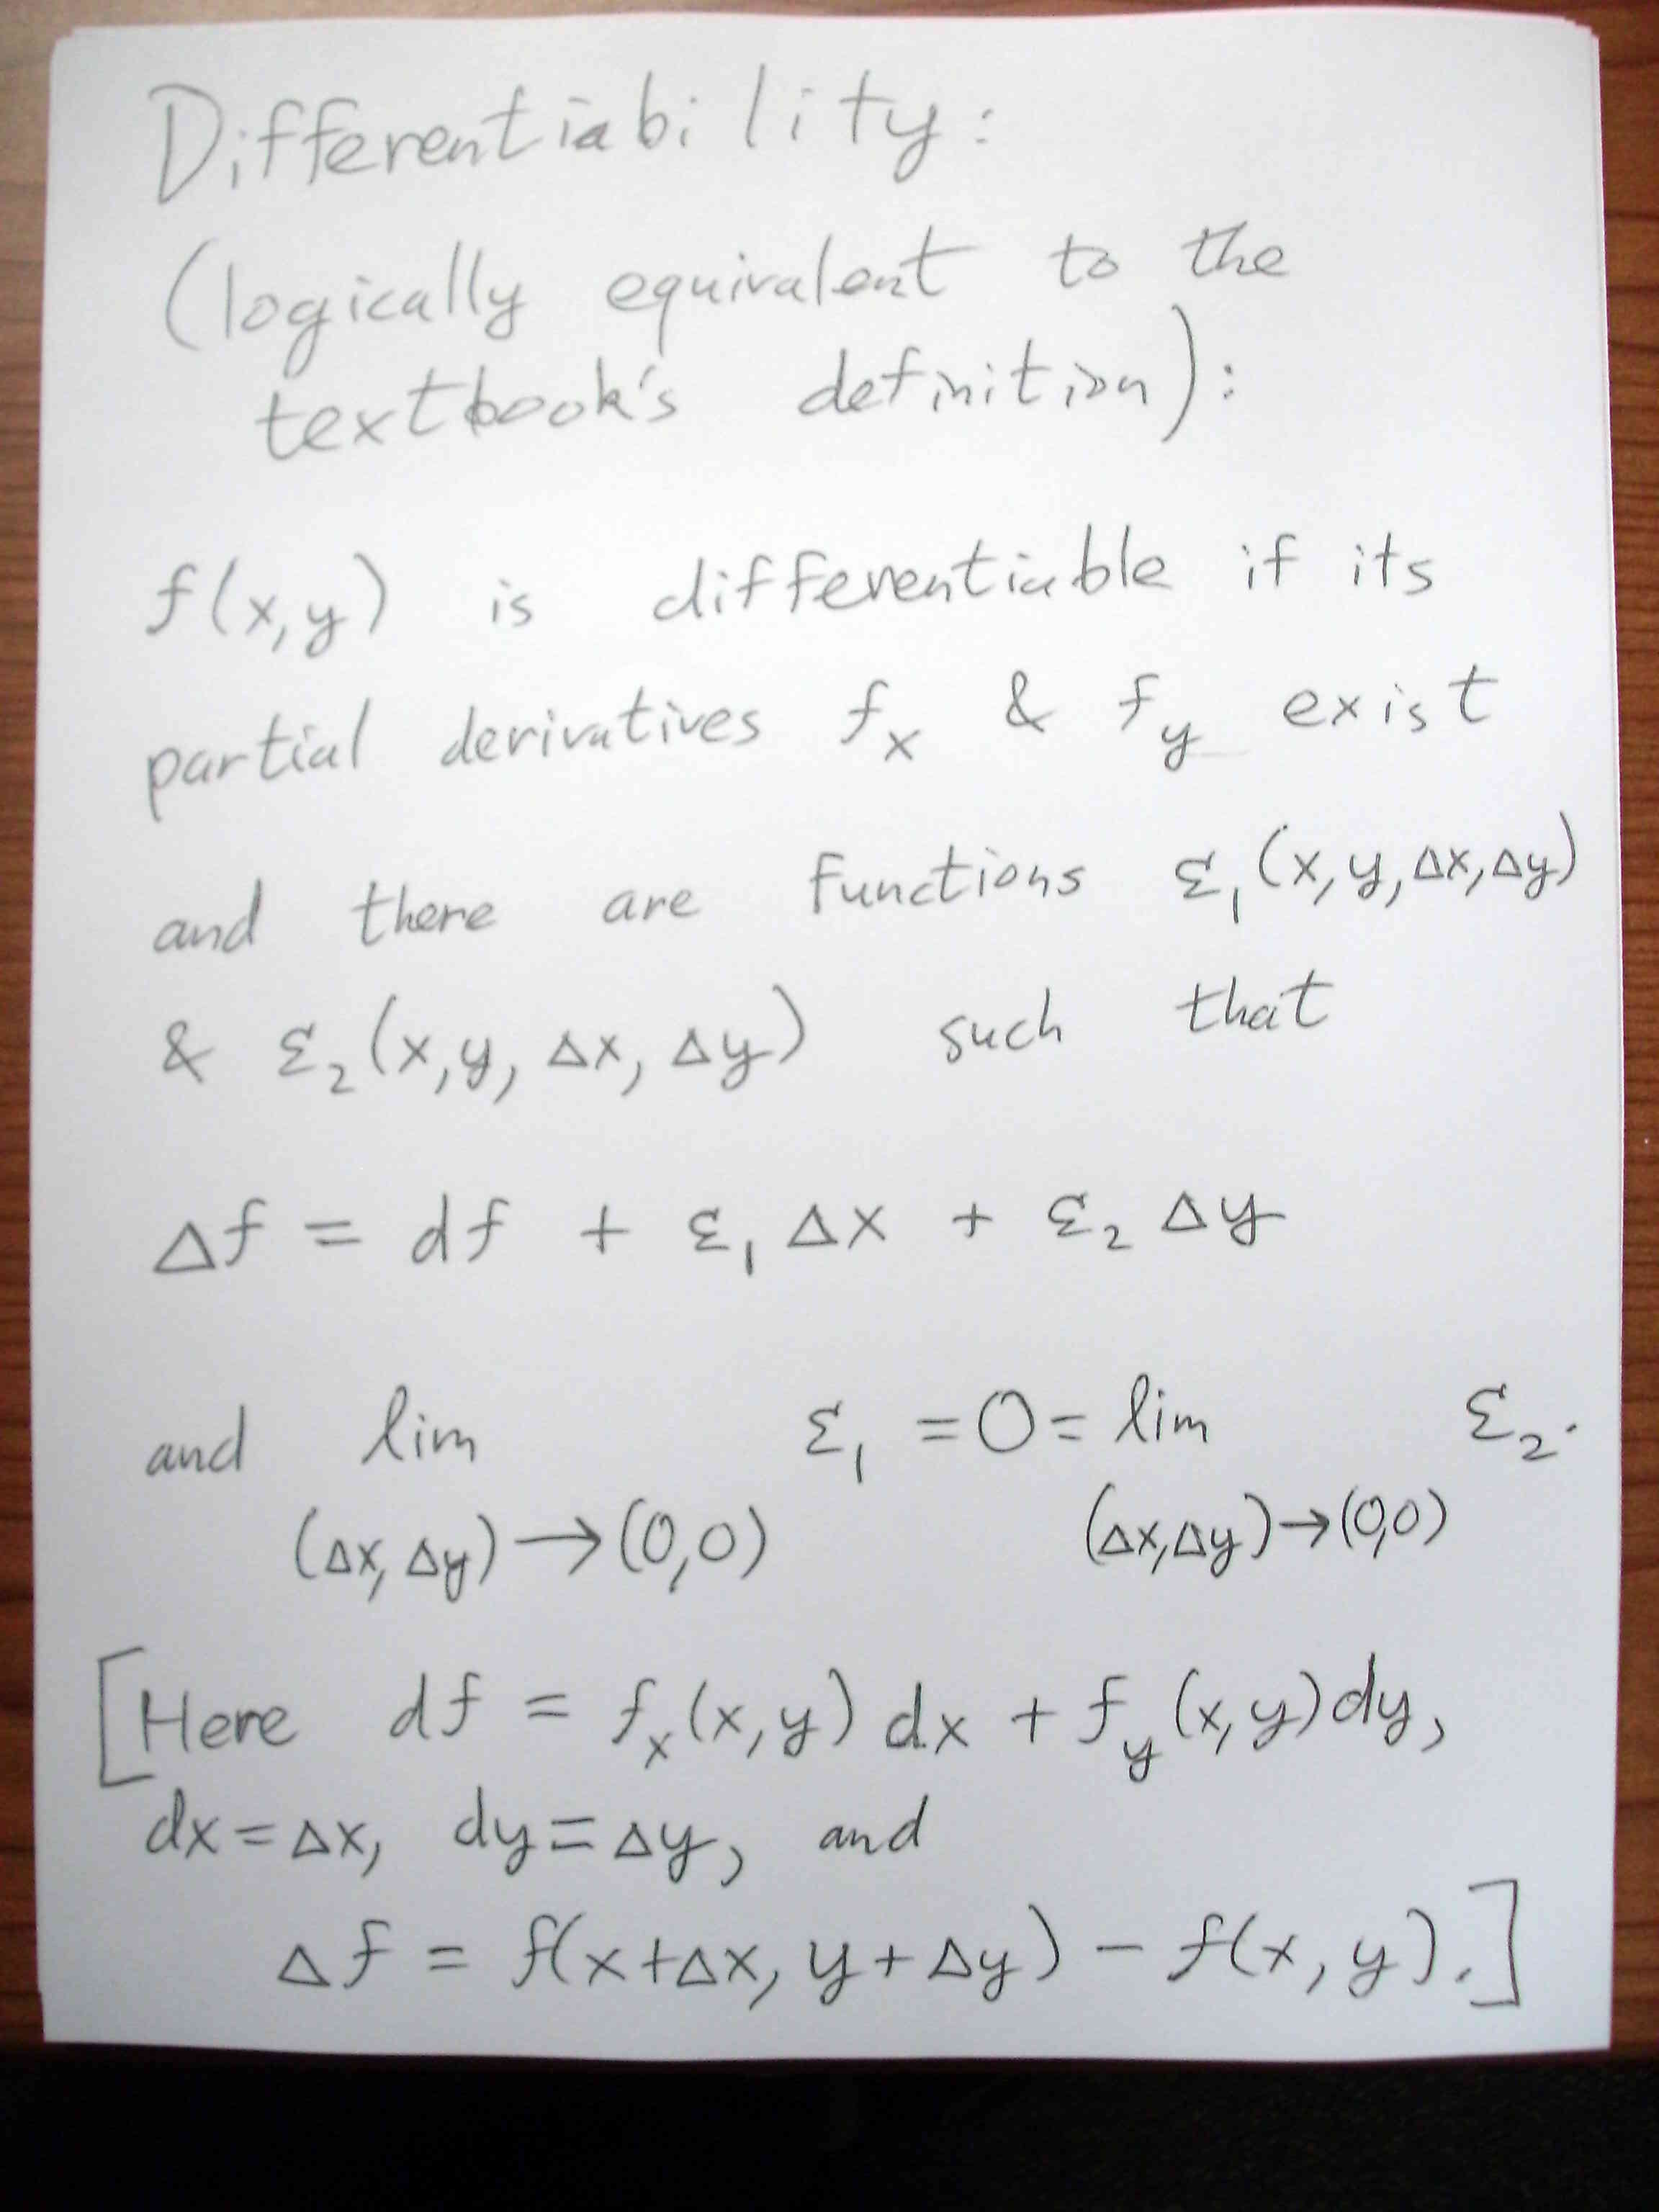 Differentiability:
(logically equivalent to the
textbook's definition):
f(x,y) is differentiable if its
partial derivatives fₓ & f_y exist
and there are functions ε₁(x,y,Δx,Δy)
& ε₂(x,y,Δx,Δy) such that
Δf = df + ε₁ Δx + ε₂ Δy
and lim ε₁ = 0 = lim ε₂.
(Δx,Δy)→(0,0) (Δx,Δy)→(0,0)
[Here df = fₓ(x,y)dx + f_y(x,y)dy,
dx=Δx, dy=Δy, and
Δf = f(x+Δx, y+Δy) - f(x,y).]